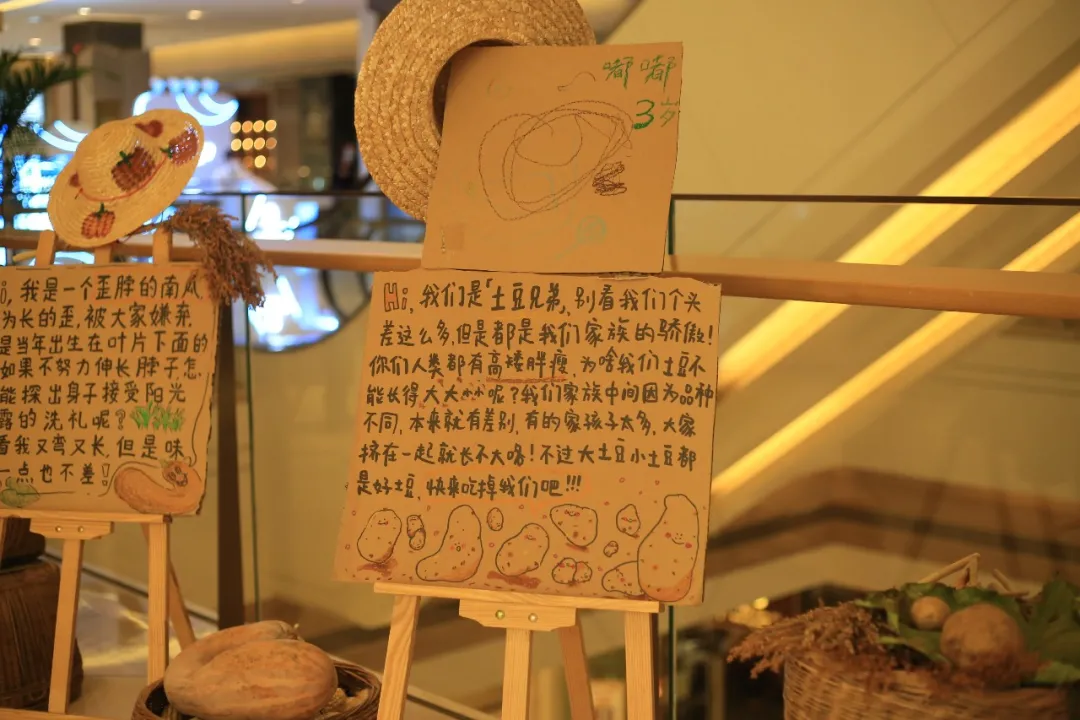 嘟嘟
3岁
Hi, 我们是「土豆兄弟」, 别看我们个头
差这么多, 但是都是我们家族的骄傲!
你们人类都有高矮胖瘦, 为啥我们土豆不
能长得大大小小呢? 我们家族中间因为品种
不同, 本来就有差别, 有的家孩子太多, 大家
挤在一起就长不大咯! 不过大土豆小土豆都
是好土豆, 快来吃掉我们吧!!!
, 我是一个歪脖的南瓜,
为长的歪, 被大家嫌弃,
是当年出生在叶片下面的
如果不努力伸长脖子怎
能探出身子接受阳光
露的洗礼呢?
看我又弯又长, 但是味
一点也不差!